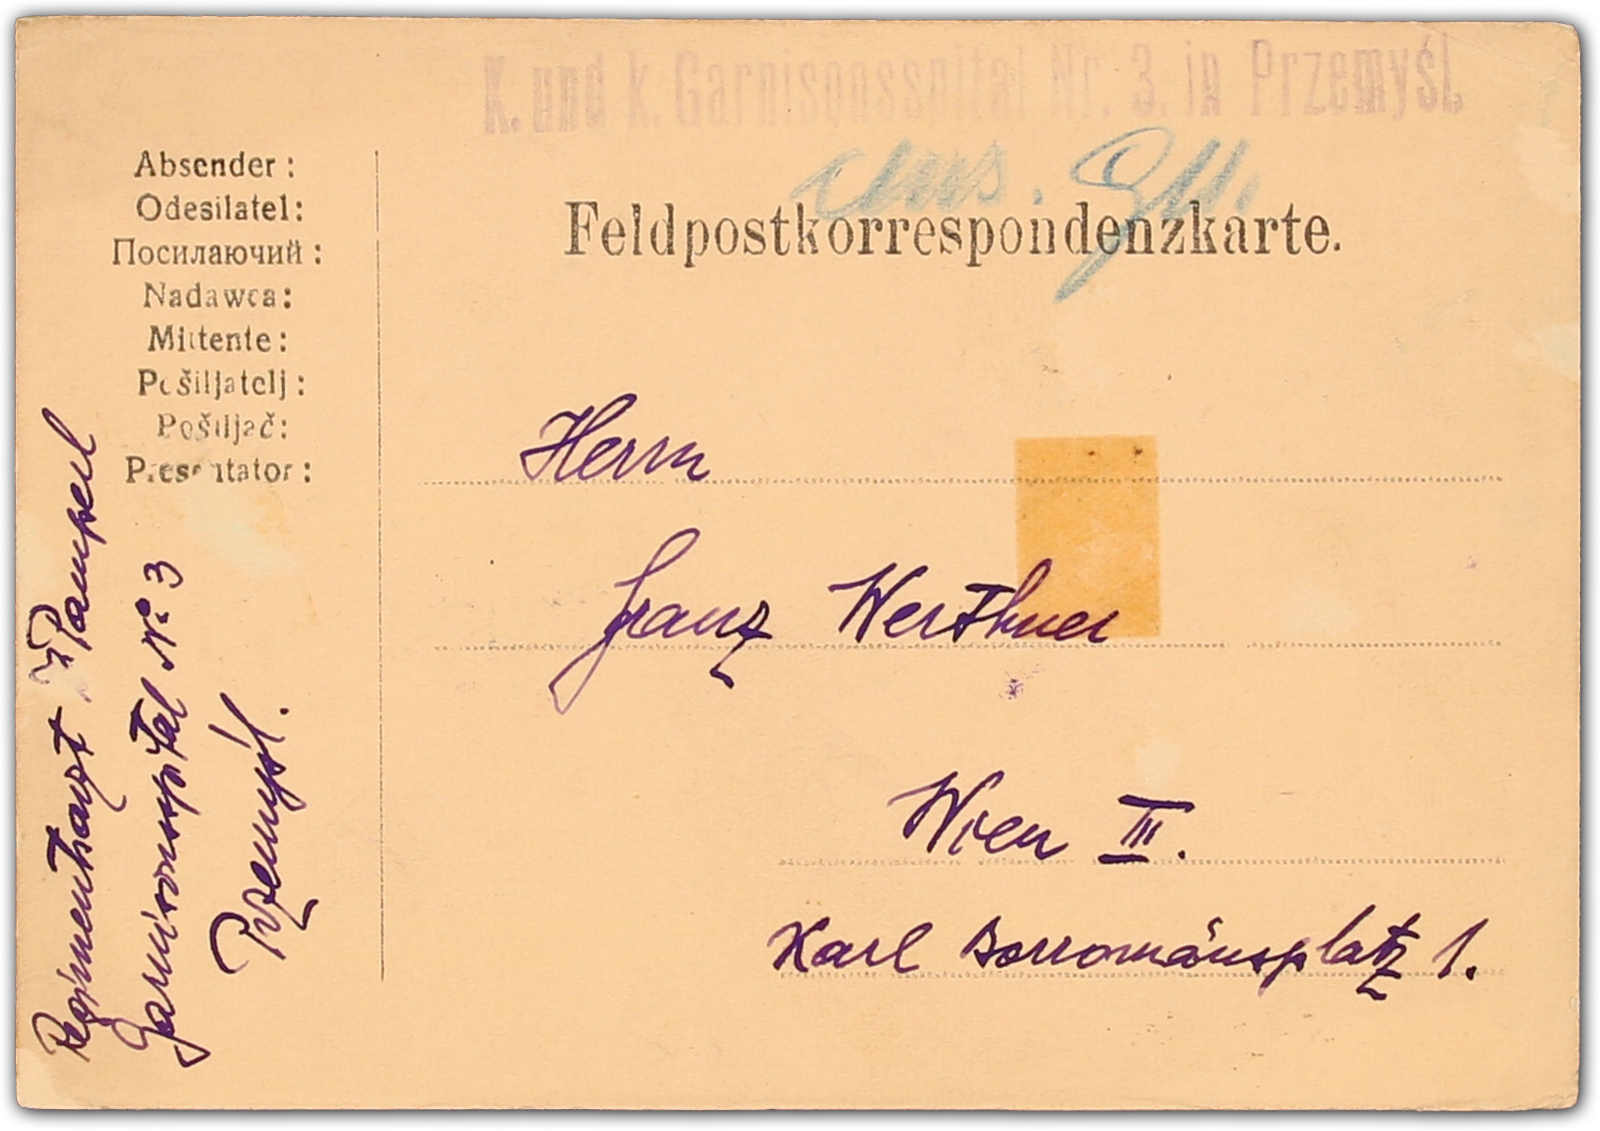 K. und k. Garnisonsspital Nr. 3. in Przemyśl.
Feldpostkorrespondenzkarte.
Absender:
Odesilatel:
Посилаючий:
Nadawca:
Mittente:
Pošiljatelj:
Pošiljač:
Presentator:
Regimentsarzt
Garnisonsspital № 3
Przemyśl.
Herrn
Franz Werthner
Wien III.
Karl Borromäusplatz 1.